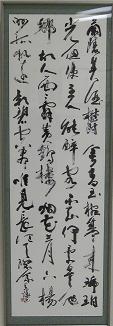 蘭陵美酒鬱金香玉椀盛來琥珀
光但使主人能醉客不知何處是他
鄉故人西辭黃鶴樓烟花三月下楊
州孤帆遠影碧空盡唯見長江天際流